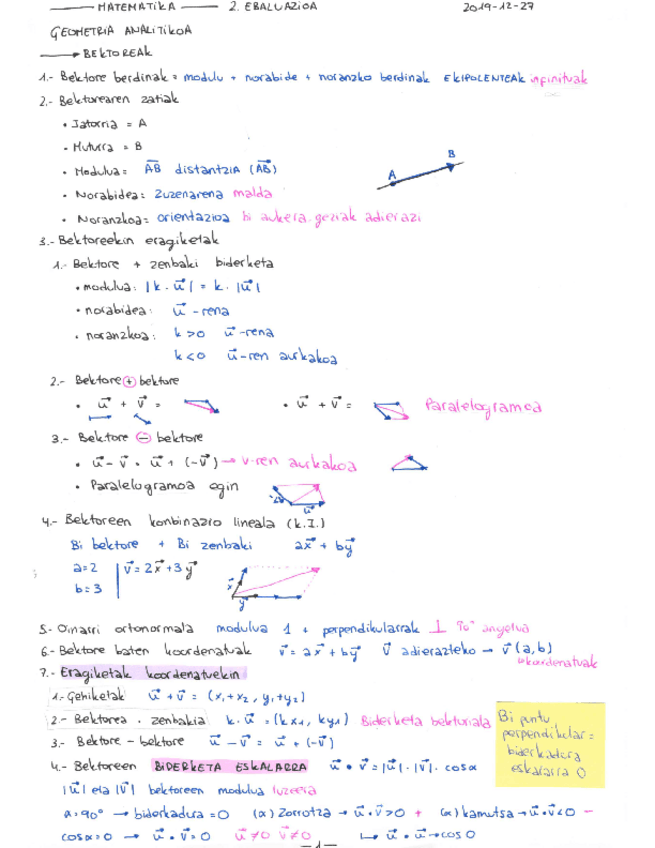 MATEMATIKA — 2. EBALUAZIOA 2019-12-27
GEOMETRIA ANALITIKOA
→ BEKTOREAK
1.- Bektore berdinak = modulu + norabide + noranzko berdinak EKIPOLENTEAK infinituak
2.- Bektorearen zatiak
• Jatorria = A
• Muturra = B
• Modulua = AB distantzia (AB)
• Norabidea = zuzenarena malda
• Noranzkoa = orientazioa bi aukera geziak adierazi
A B
3.- Bektoreekin eragiketak
1.- Bektore + zenbaki biderketa
• modulua: |k · u| = k · |u|
• norabidea: u -rena
• noranzkoa: k > 0 u -rena
k < 0 u -ren aurkakoa
2.- Bektore + bektore
• u + v = • u + v = Paralelogramoa
3.- Bektore - bektore
• u - v = u + (-v) → v-ren aurkakoa
• Paralelogramoa egin
4.- Bektoreen konbinazio lineala (k.I.)
Bi bektore + Bi zenbaki ax + by
a=2 | v = 2x + 3y
b=3
5.- Oinarri ortonormala modulua 1 + perpendikularrak ⊥ 90° angelua
6.- Bektore baten koordenatuak v = ax + by v adierazteko → v (a,b)
↳ koordenatuak
7.- Eragiketak koordenatuekin
1.- Gehiketak u + v = (x1+x2, y1+y2)
2.- Bektorea · zenbakia k · u = (kx1, ky1) Biderketa bektoriala
3.- Bektore - bektore u - v = u + (-v)
4.- Bektoreen BIDERKETA ESKALARRA u · v = |u| · |v| · cosα
Bi puntu
perpendikular =
biderkadura
eskalarra 0
|u| eta |v| bektoreen modulua luzeera
α = 90° → biderkadura = 0 (α) zorrotza → u · v > 0 + (α) kamutsa → u · v < 0 -
cosα = 0 → u · v = 0 u ≠ 0 v ≠ 0 ↳ u · u → cos 0
—1—